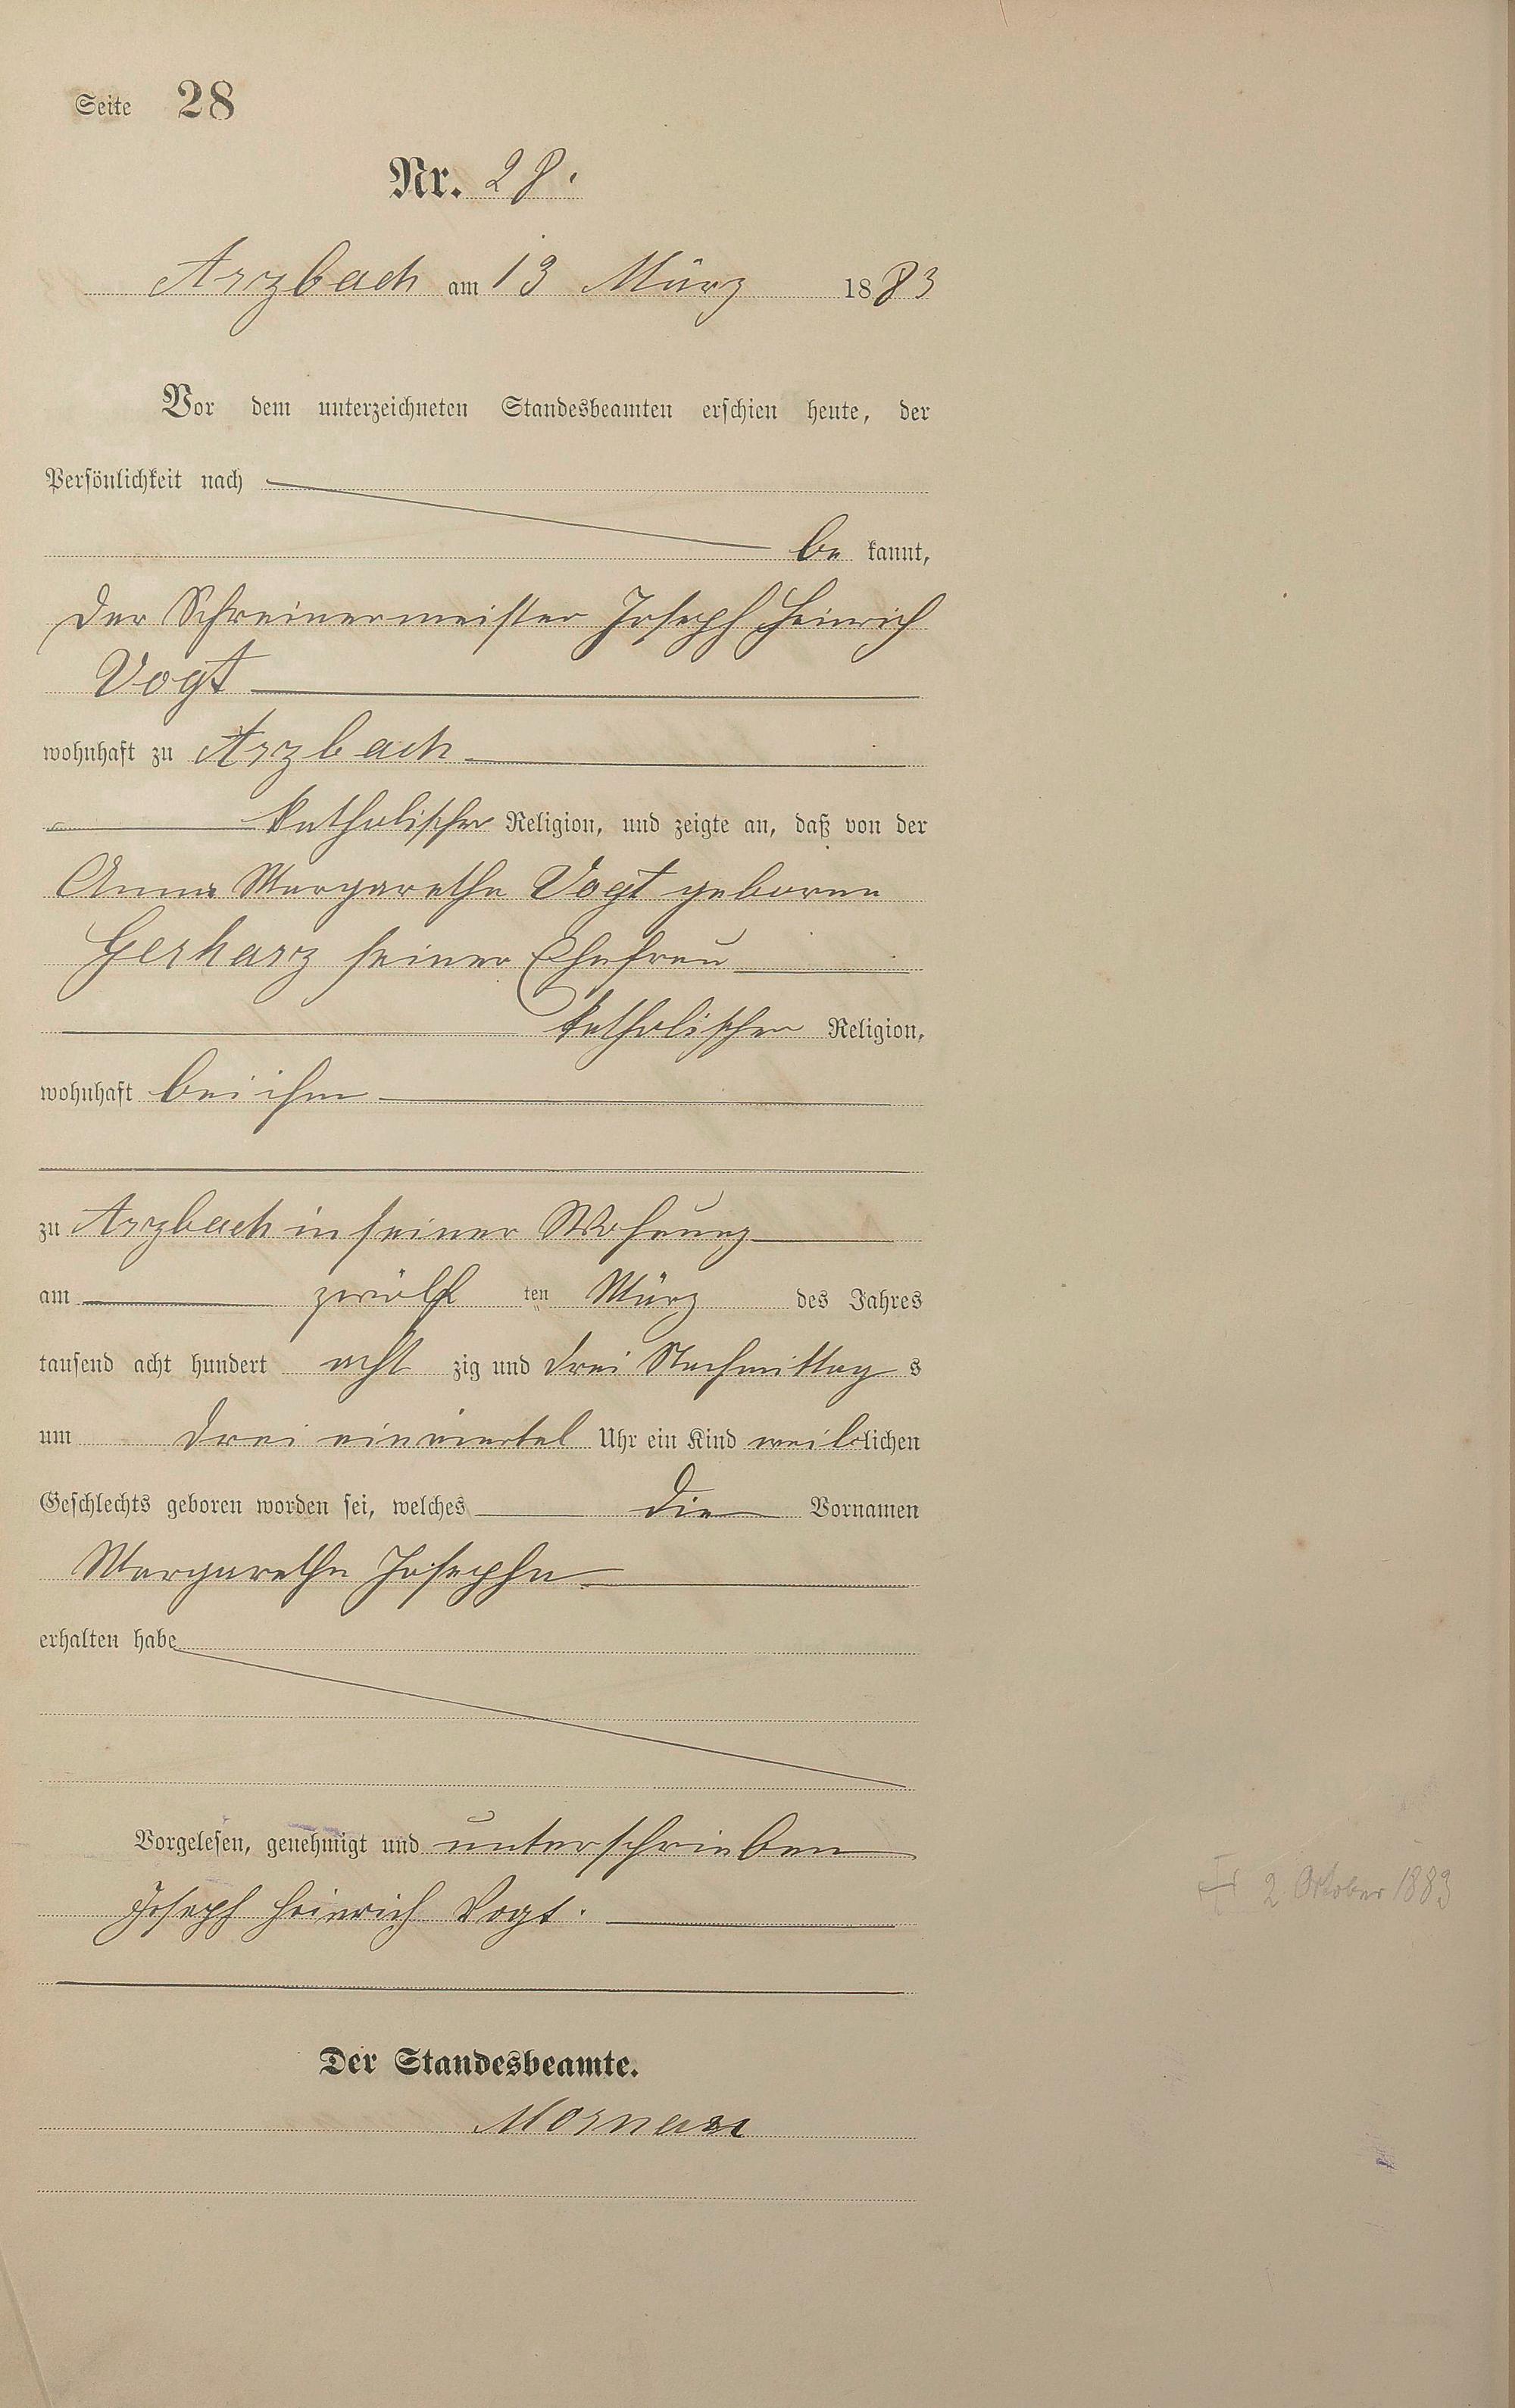 Seite 28
Nr. 28.
Arzbach am 13 März 1883
Vor dem unterzeichneten Standesbeamten erschien heute, der
Persönlichkeit nach
be kannt,
der Schreinermeister Joseph Heinrich
Vogt
wohnhaft zu Arzbach
katholischer Religion, und zeigte an, daß von der
Anna Margarethe Vogt geborene
Gerharz seiner Ehefrau
katholischer Religion,
wohnhaft bei ihm
zu Arzbach in seiner Wohnung
am zwölf ten März des Jahres
tausend acht hundert acht zig und drei Nachmittag s
um drei einviertel Uhr ein Kind weiblichen
Geschlechts geboren worden sei, welches die Vornamen
Margarethe Josephe
erhalten habe
Vorgelesen, genehmigt und unterschrieben
Joseph Heinrich Vogt.
† 2 Oktober 1883
Der Standesbeamte.